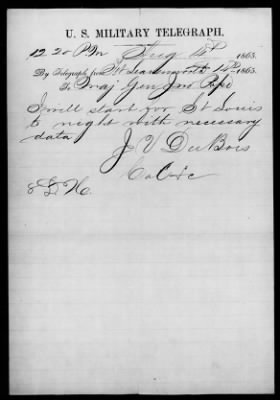 U. S. MILITARY TELEGRAPH.
12 20 P.M Aug 14th 1865.
By Telegraph from Ft Leavenworth 1865.
To Maj Gen Jno Pope
I will start for St Louis
to night with necessary
data
J V DuBois
Col &c